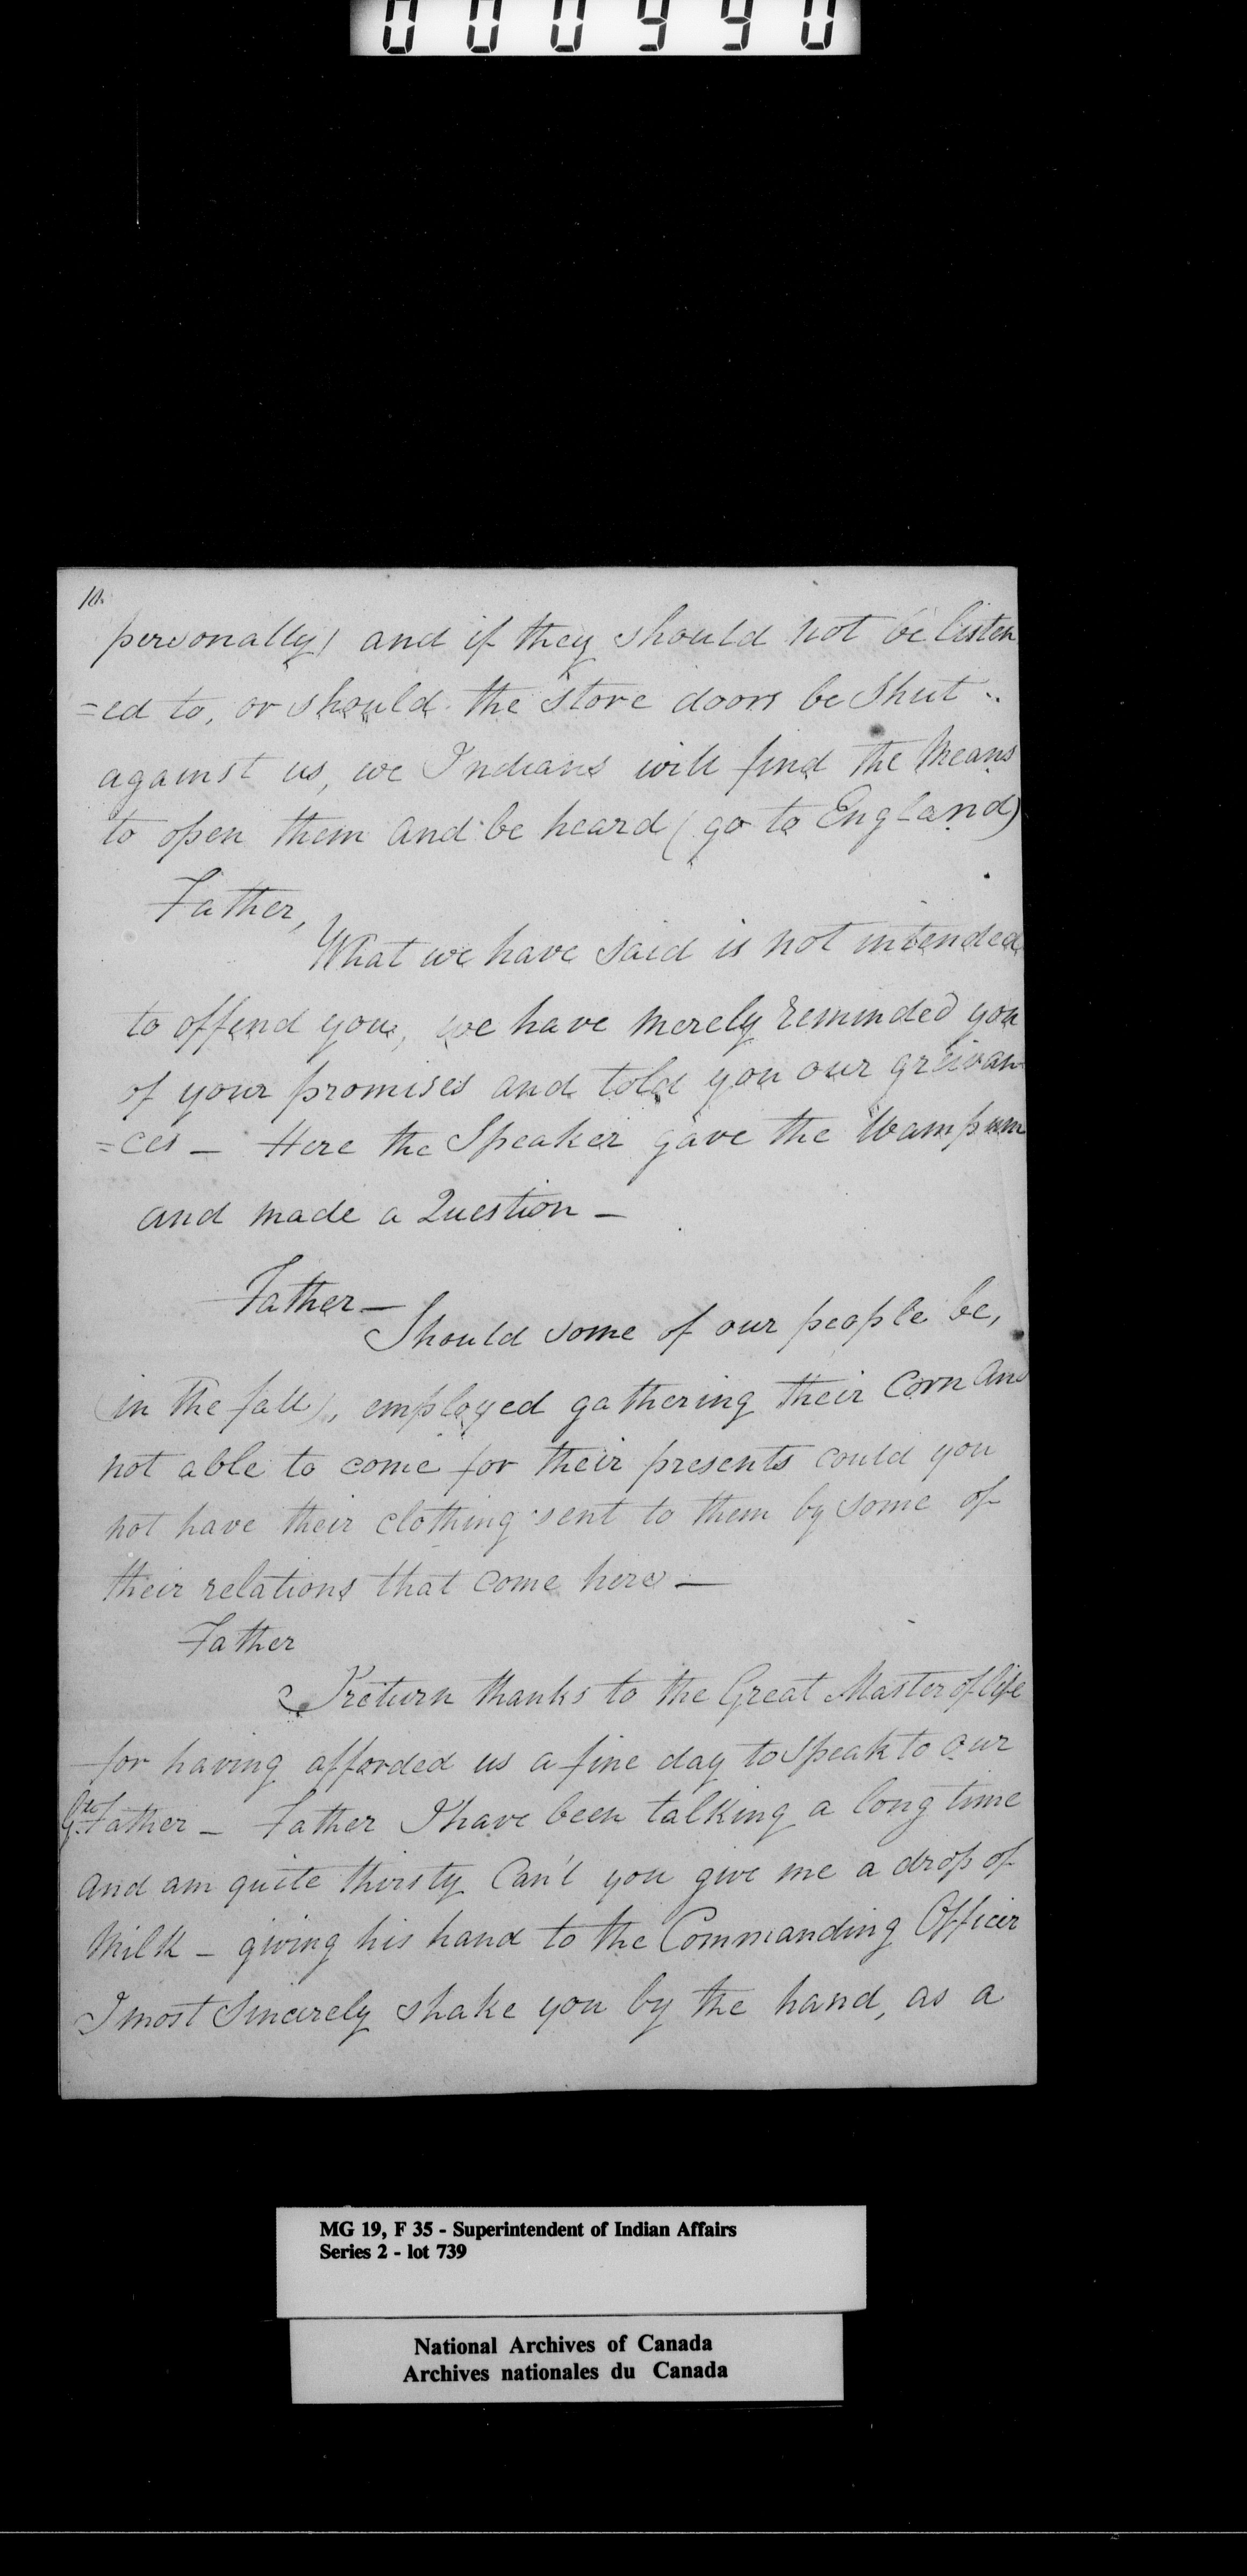 000990
10.
personally) and if they should not be listen
=ed to, or should the store doors be shut
against us, we Indians will find the Means
to open them and be heard (go to England)
Father,
What we have said is not intended
to offend you, we have merely reminded you
of your promises and told you our greivan
=ces — Here the Speaker gave the Wampum
and made a Question —
Father —
Should some of our people be,
(in the fall), employed gathering their Corn and
not able to come for their presents could you
not have their clothing sent to them by some of
their relations that come here —
Father
I return thanks to the Great Master of life
for having afforded us a fine day to speak to our
Father — Father I have been talking a long time
and am quite thirsty Can't you give me a drop of
Milk — giving his hand to the Commanding Officer
I most Sincerely shake you by the hand, as a
MG 19, F 35 - Superintendent of Indian Affairs
Series 2 - lot 739
National Archives of Canada
Archives nationales du Canada